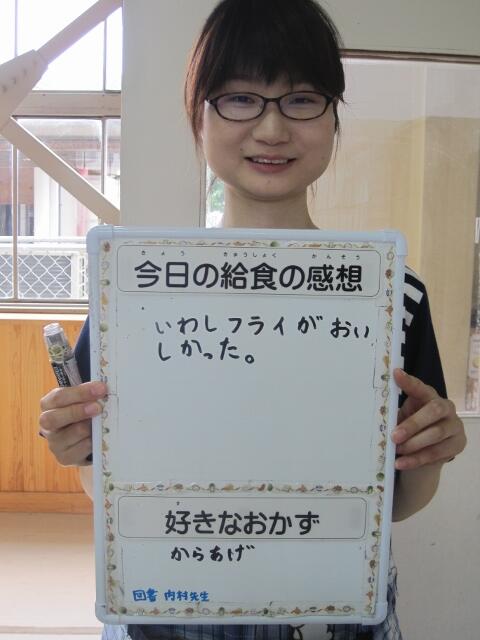 きょう きゅうしょく かんそう
今日の給食の感想
いわしフライがおい
しかった。
す
好きなおかず
からあげ
図書 内村先生